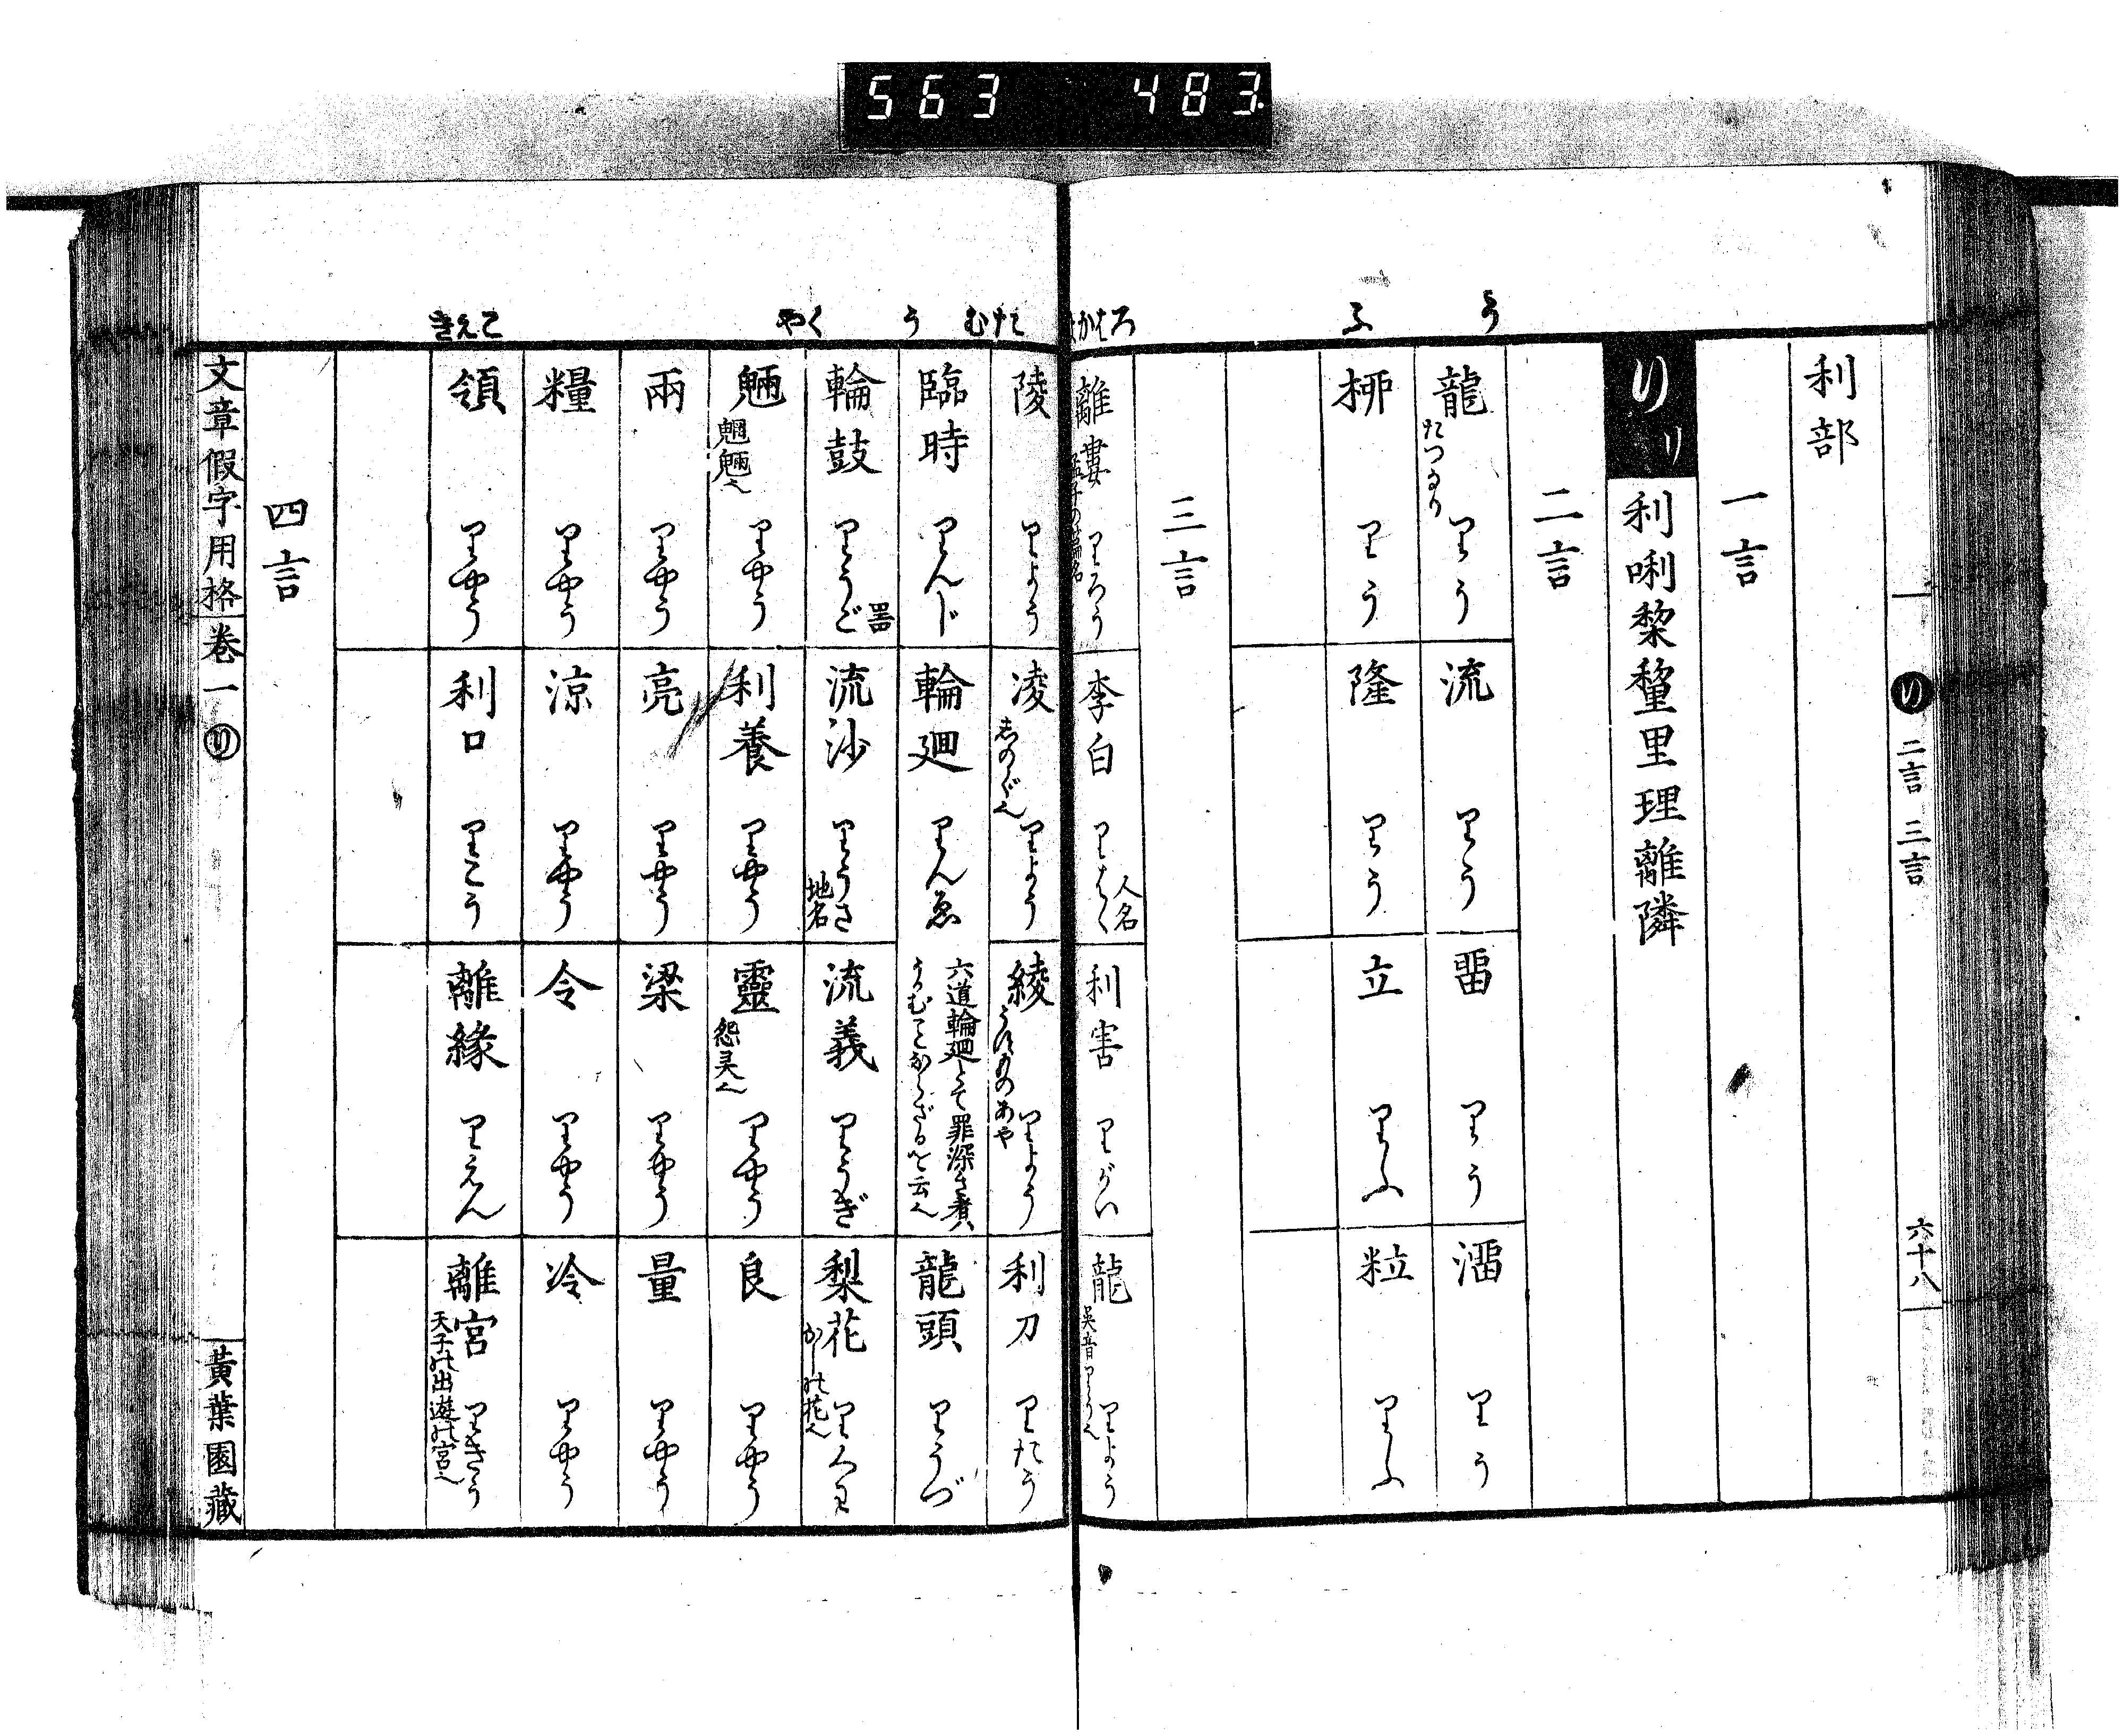 563 483
うふ
ろはかよ
たけむうくや
こえき
り 二言 三言
六十八
利部
一言
り リ 利唎黎犂里理離隣
二言
龍 たつなり りう
流 りう
畱 りう
澑 りう
桺 りう
隆 りう
立 りふ
粒 りふ
三言
離婁 孟子の篇名 りろう
李白 人名 りはく
利害 りがい
龍 呉音りうへ りよう
陵 りよう
凌 しのぐ也 りよう
綾 りよう
利刀 りたう
臨時 りんじ
輪廻 りんゑ
六道輪廻とて罪深き者
龍頭 りうづ
輪鼓 器 りうご
流沙 地名 りうさ
流義 りうぎ
梨花 りくわ
魎 魍魎也 りやう
利養 りやう
靈 怨灵也 りやう
良 りやう
兩 りやう
亮 りやう
梁 りやう
量 りやう
糧 りやう
涼 りやう
令 りやう
冷 りやう
領 りやう
利口 りこう
離緣 りえん
離宮 天子の出遊の宮也 りきう
四言
文章假字用格 卷一 り
黃葉園藏